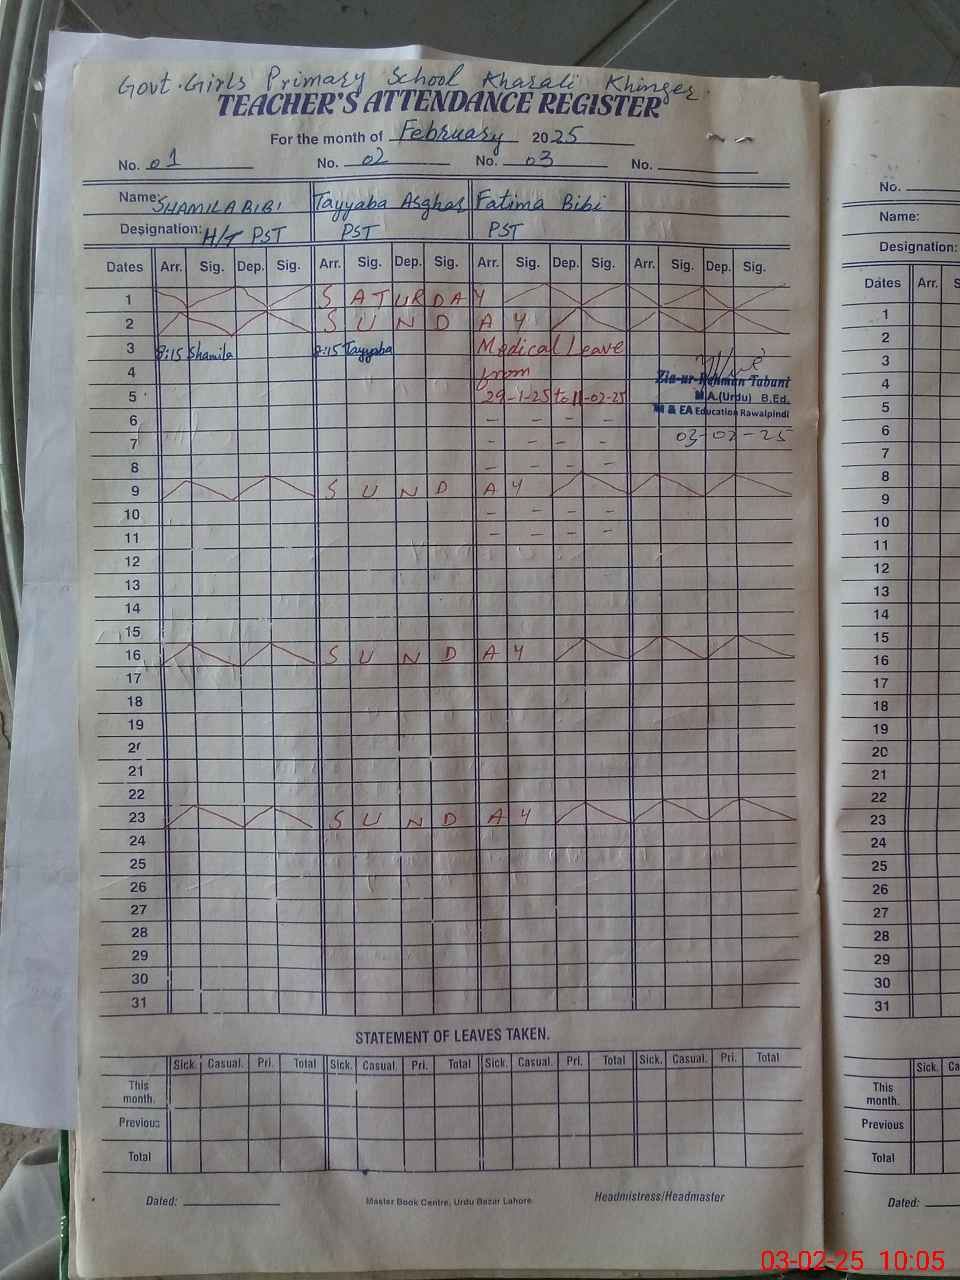 Govt. Girls Primary School Kharali Khinger
TEACHER'S ATTENDANCE REGISTER
For the month of February 2025
No. 01 No. 02 No. 03 No.
Name: SHAMILA BIBI Tayyaba Asghar Fatima Bibi
Designation: H/T PST PST PST
Dates Arr. Sig. Dep. Sig. Arr. Sig. Dep. Sig. Arr. Sig. Dep. Sig. Arr. Sig. Dep. Sig.
1 SATURDAY
2 SUNDAY
3 8:15 Shamila 8:15 Tayyaba Medical Leave
4 from
Zia-ur-Rehman Tabani
5 29-1-25 to 11-02-25 M.A.(Urdu) B.Ed.
M & EA Education Rawalpindi
6 - - - -
7 - - - - 03-02-25
8 - - - -
9 SUNDAY
10 - - - -
11 - - - -
12
13
14
15
16 SUNDAY
17
18
19
20
21
22
23 SUNDAY
24
25
26
27
28
29
30
31
STATEMENT OF LEAVES TAKEN.
Sick. Casual. Pri. Total Sick. Casual. Pri. Total Sick. Casual. Pri. Total Sick. Casual. Pri. Total
This
month.
Previous
Total
Dated: Master Book Centre, Urdu Bazar Lahore Headmistress/Headmaster
No.
Name:
Designation:
Dates Arr. S
1
2
3
4
5
6
7
8
9
10
11
12
13
14
15
16
17
18
19
20
21
22
23
24
25
26
27
28
29
30
31
Sick. Ca
This
month.
Previous
Total
Dated:
03-02-25 10:05